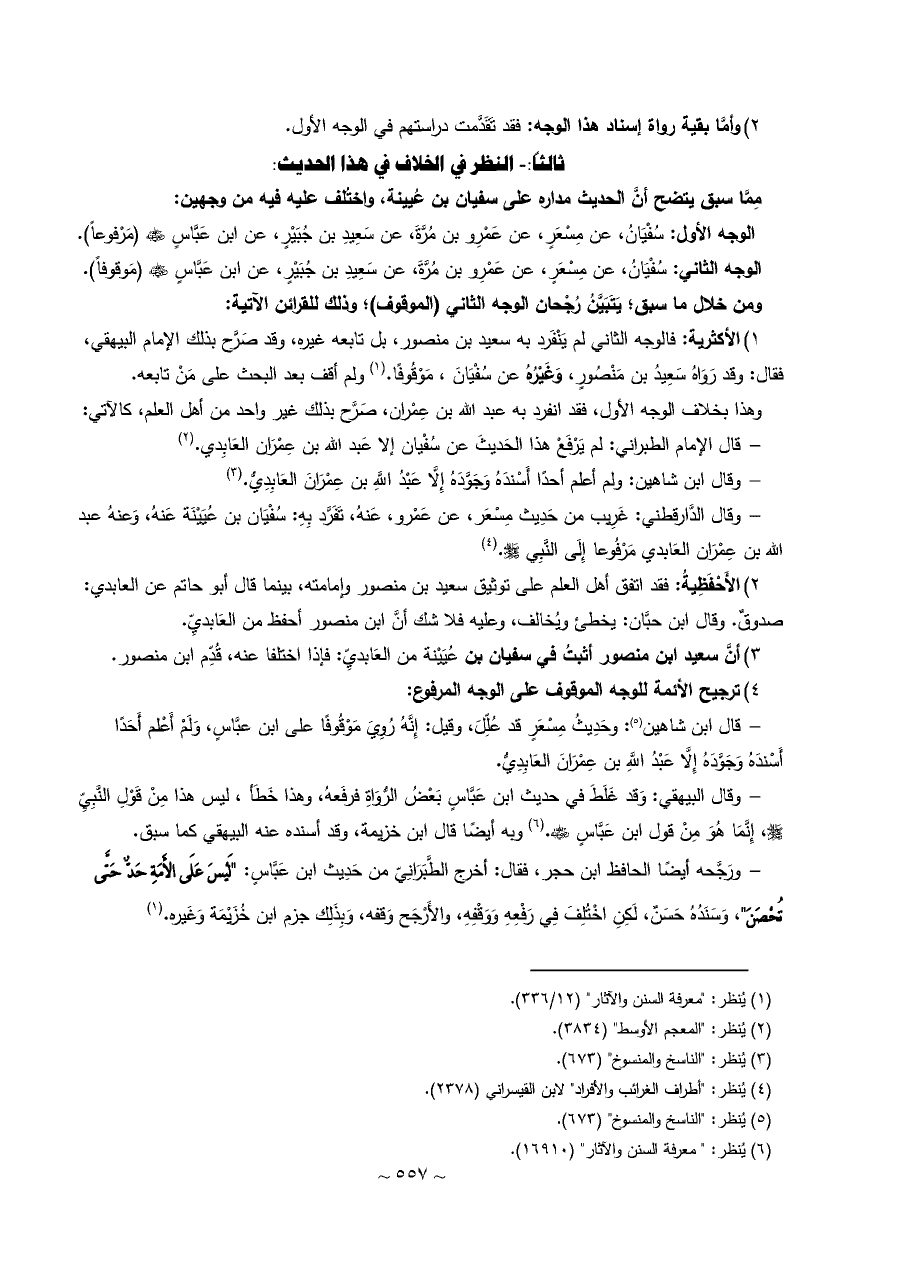 ٢) وأمَّا بقية رواة إسناد هذا الوجه: فقد تَقَدَّمت دراستهم في الوجه الأول.
ثالثاً:- النظر في الخلاف في هذا الحديث:
مِمَّا سبق يتضح أنَّ الحديث مداره على سفيان بن عُيينة، واختُلف عليه فيه من وجهين:
الوجه الأول: سُفْيَانُ، عن مِسْعَرٍ، عن عَمْرِو بن مُرَّةَ، عن سَعِيدِ بن جُبَيْرٍ، عن ابن عَبَّاسٍ ﷺ (مَرْفوعاً).
الوجه الثاني: سُفْيَانُ، عن مِسْعَرٍ، عن عَمْرِو بن مُرَّةَ، عن سَعِيدِ بن جُبَيْرٍ، عن ابن عَبَّاسٍ ﷺ (مَوقوفاً).
ومن خلال ما سبق؛ يَتَبَيَّنُ رُجْحان الوجه الثاني (الموقوف)؛ وذلك للقرائن الآتية:
١) الأكثرية: فالوجه الثاني لم يَنْفَرِد به سعيد بن منصور، بل تابعه غيره، وقد صَرَّح بذلك الإمام البيهقي،
فقال: وقد رَوَاهُ سَعِيدُ بن مَنْصُورٍ، وَغَيْرُهُ عن سُفْيَانَ ، مَوْقُوفًا.(١) ولم أقف بعد البحث على مَنْ تابعه.
وهذا بخلاف الوجه الأول، فقد انفرد به عبد الله بن عِمْران، صَرَّح بذلك غير واحد من أهل العلم، كالآتي:
– قال الإمام الطبراني: لم يَرْفَعْ هذا الحَديثَ عن سُفْيان إلا عَبد الله بن عِمْرَان العَابِدي.(٢)
– وقال ابن شاهين: ولم أعلم أحدًا أَسْنَدَهُ وَجَوَّدَهُ إِلَّا عَبْدُ اللَّهِ بن عِمْرَانَ العَابِدِيُّ.(٣)
– وقال الدَّارقطني: غَرِيب من حَدِيث مِسْعَر، عن عَمْرو، عَنهُ، تَفَرَّد بِهِ: سُفْيَان بن عُيَيْنَة عَنهُ، وَعنهُ عبد
الله بن عِمْرَان العَابدي مَرْفُوعا إِلَى النَّبِي ﷺ.(٤)
٢) الأَحْفَظِيةُ: فقد اتفق أهل العلم على توثيق سعيد بن منصور وإمامته، بينما قال أبو حاتم عن العابدي:
صدوقٌ. وقال ابن حبَّان: يخطئ ويُخالف، وعليه فلا شك أنَّ ابن منصور أحفظ من العَابديّ.
٣) أنَّ سعيد ابن منصور أثبتُ في سفيان بن عُيَيْنة من العَابديّ: فإذا اختلفا عنه، قُدِّم ابن منصور.
٤) ترجيح الأئمة للوجه الموقوف على الوجه المرفوع:
– قال ابن شاهين(٥): وحَدِيثُ مِسْعَرٍ قد عُلِّلَ، وقيل: إِنَّهُ رُوِيَ مَوْقُوفًا على ابن عبَّاسٍ، وَلَمْ أَعْلم أَحَدًا
أَسْنَدَهُ وَجَوَّدَهُ إِلَّا عَبْدُ اللَّهِ بن عِمْرَانَ العَابِدِيُّ.
– وقال البيهقي: وَقد غَلَطَ في حديث ابن عَبَّاسٍ بَعْضُ الرُّوَاةِ فرفَعهُ، وهذا خَطَأٌ ، ليس هذا مِنْ قَوْلِ النَّبِيِّ
ﷺ، إِنَّمَا هُوَ مِنْ قول ابن عَبَّاسٍ ﷺ.(٦) وبه أيضًا قال ابن خزيمة، وقد أسنده عنه البيهقي كما سبق.
– ورَجَّحه أيضًا الحافظ ابن حجر، فقال: أخرج الطَّبَرَانِيّ من حَدِيث ابن عَبَّاسٍ: "لَيْسَ عَلَى الأَمَةِ حَدٌّ حَتَّى
تُحْصَنَ"، وَسَنَدُهُ حَسَنٌ، لَكِنِ اخْتُلِفَ فِي رَفْعِهِ وَوَقْفِهِ، والأَرْجَح وَقفه، وَبِذَلِك جزم ابن خُزَيْمَة وَغَيره.(١)
(١) يُنظر: "معرفة السنن والآثار" (٣٣٦/١٢).
(٢) يُنظر: "المعجم الأوسط" (٣٨٣٤).
(٣) يُنظر: "الناسخ والمنسوخ" (٦٧٣).
(٤) يُنظر: "أطراف الغرائب والأفراد" لابن القيسراني (٢٣٧٨).
(٥) يُنظر: "الناسخ والمنسوخ" (٦٧٣).
(٦) يُنظر: " معرفة السنن والآثار" (١٦٩١٠).
~ ٥٥٧ ~